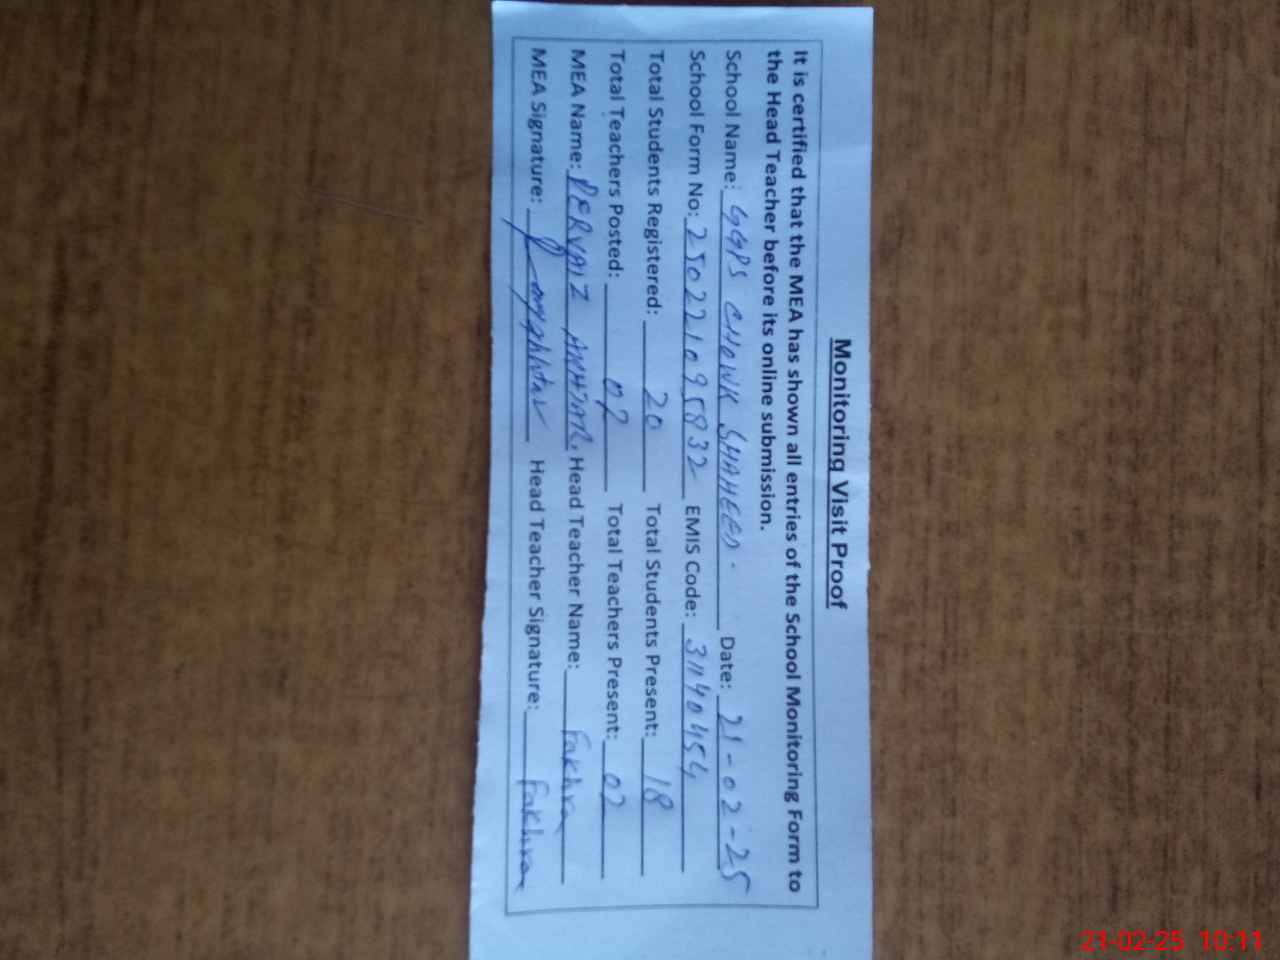 Monitoring Visit Proof
It is certified that the MEA has shown all entries of the School Monitoring Form to
the Head Teacher before its online submission.
School Name: GGPS CHOWK SHAHEED. Date: 21-02-25
School Form No: 250221095832 EMIS Code: 31140454
Total Students Registered: 20 Total Students Present: 18
Total Teachers Posted: 02 Total Teachers Present: 02
MEA Name: PERVAIZ Head Teacher Name: Fakhra
MEA Signature: Head Teacher Signature: Fakhra
21-02-25 10:11